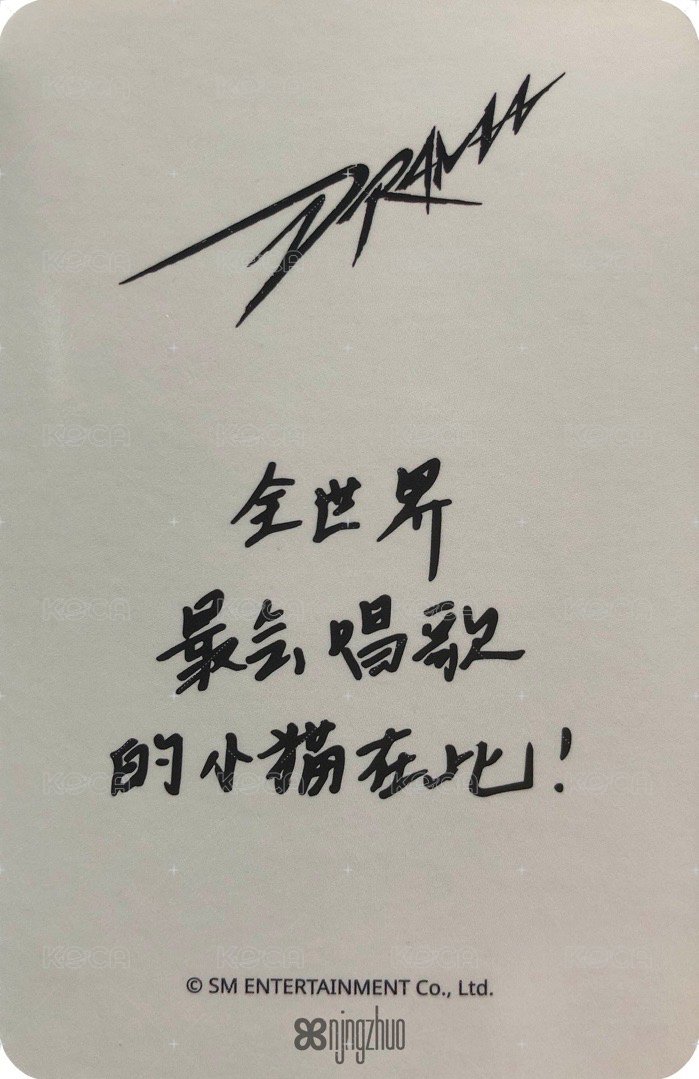 DRAMA
全世界
最会唱歌
的小猫在比!
© SM ENTERTAINMENT Co., Ltd.
njngzhuo
KOCA